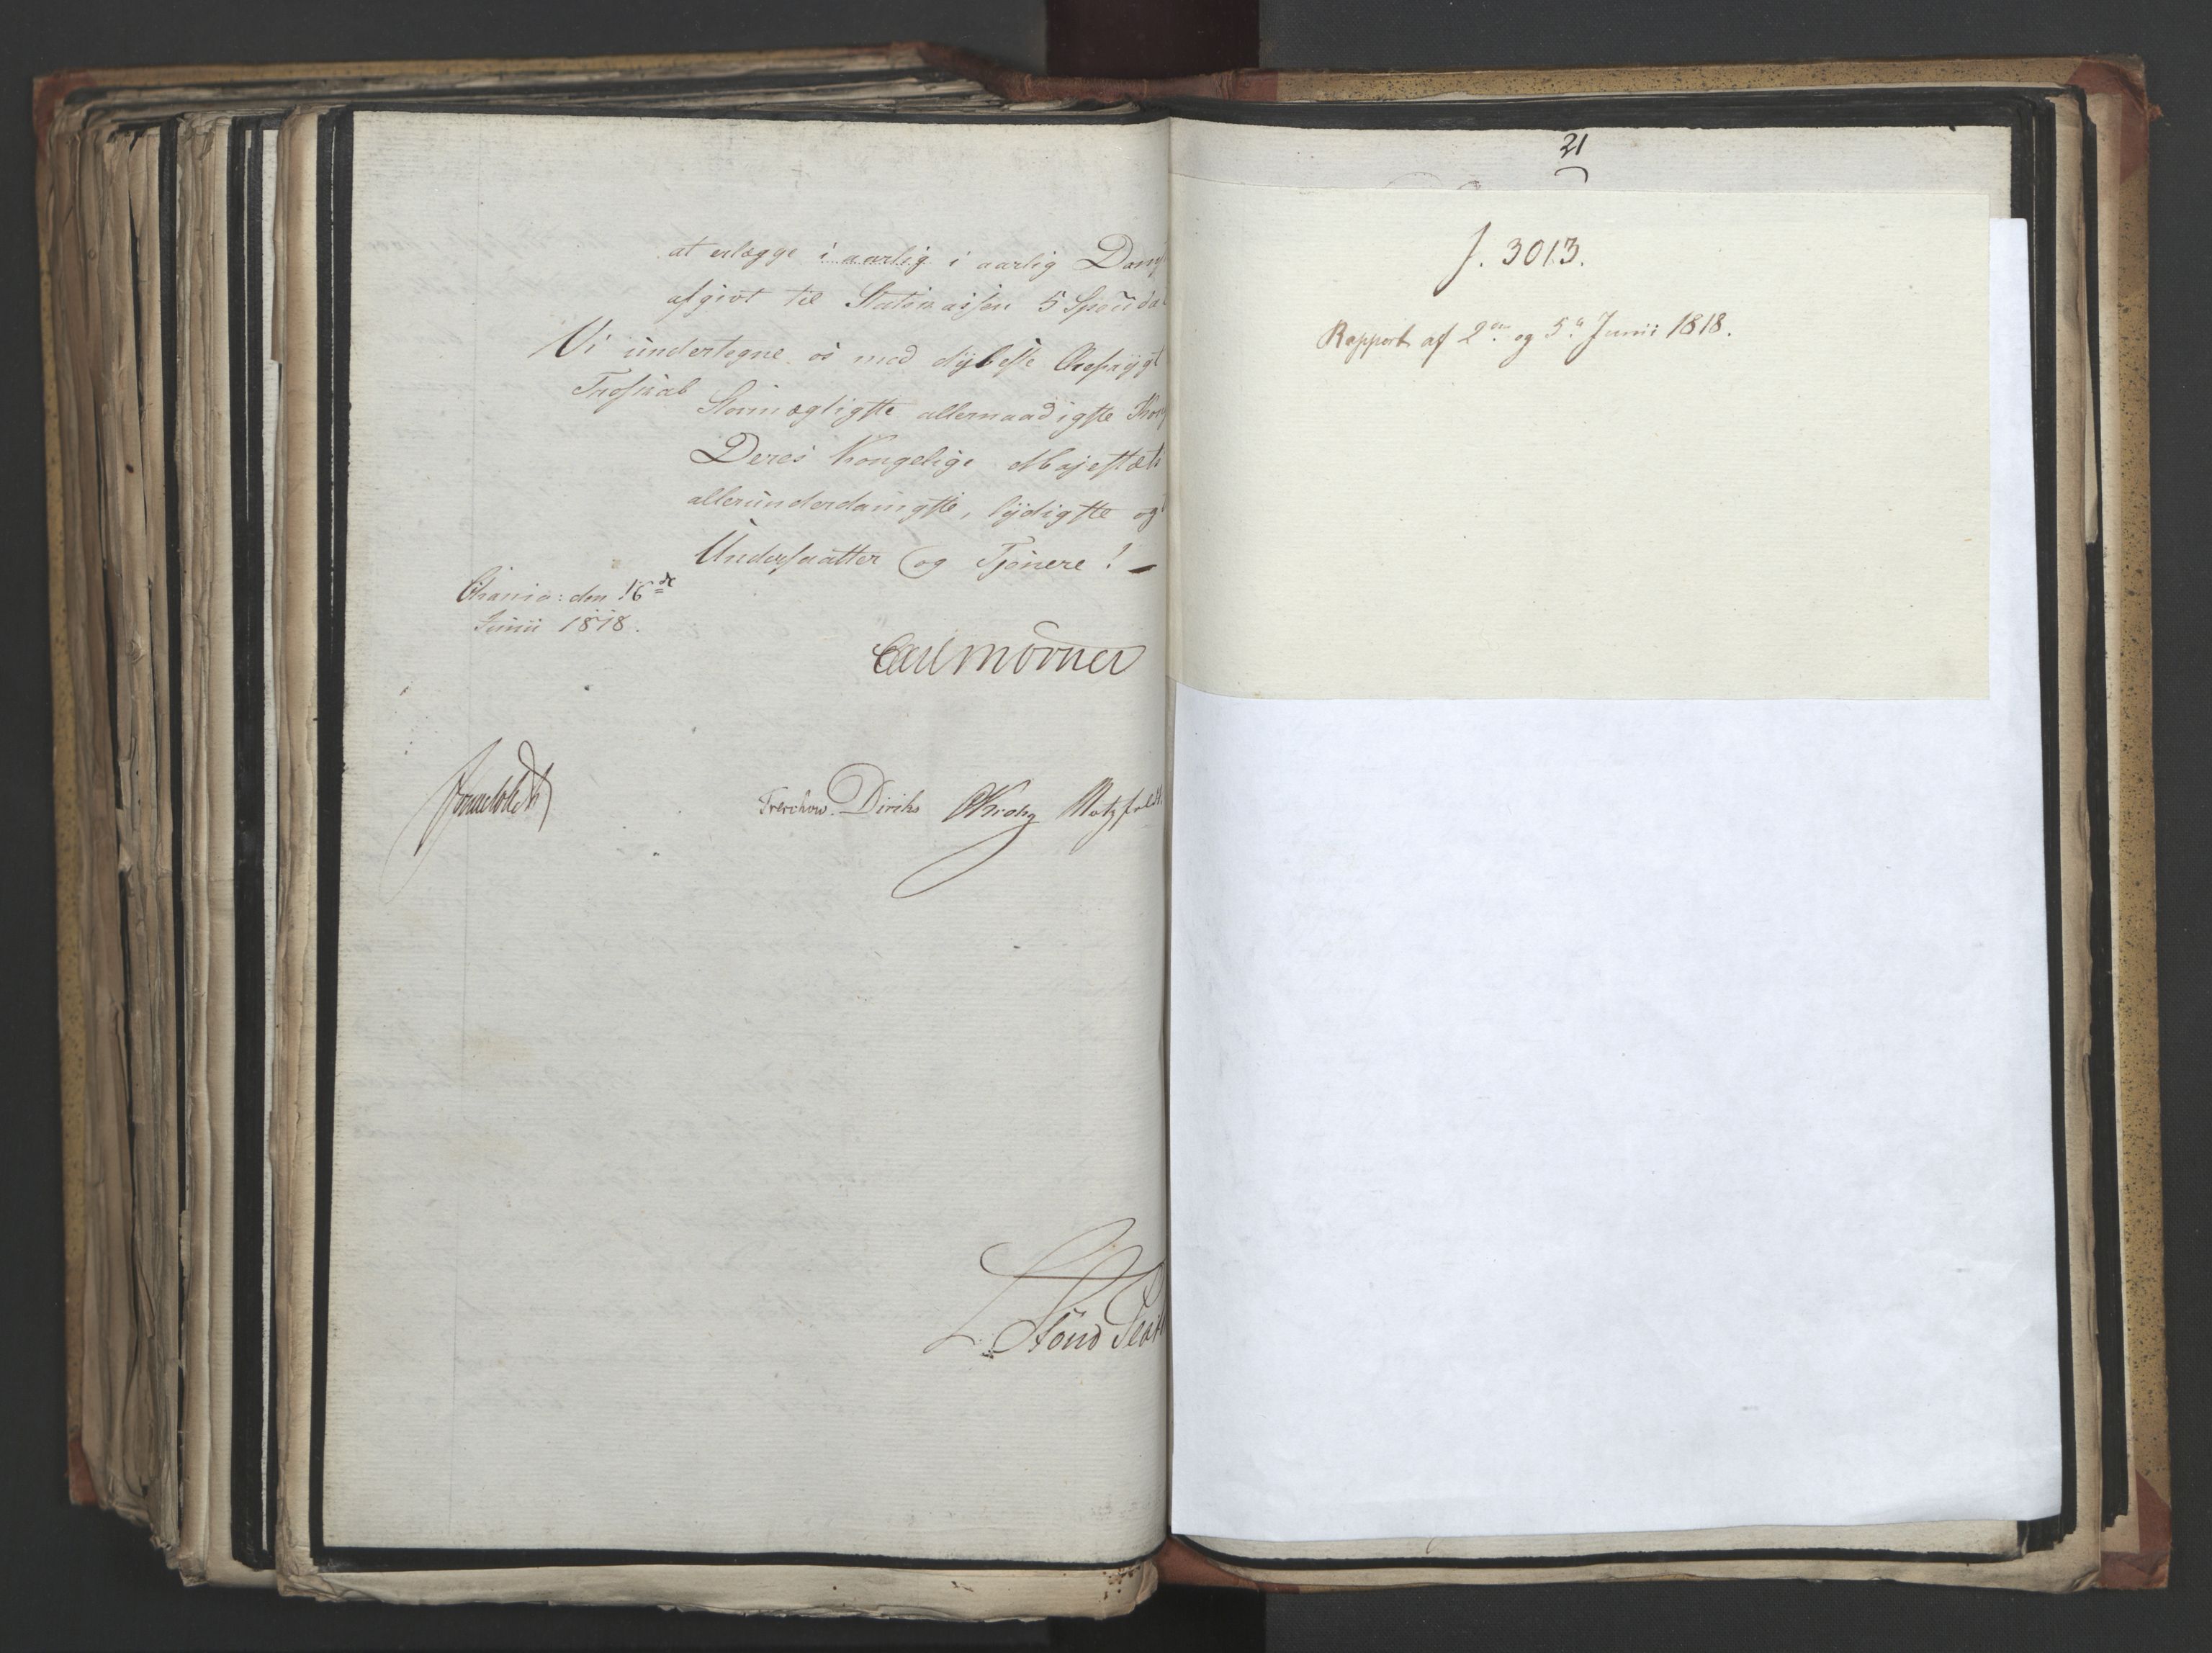 at erlægge i aarlig i aarlig
afgivt til Statskassen 5
Vi undertegne os med dybeste
Troskab
Stormægtigste allernaadigste
Deres Kongelige Majestæts
allerunderdanigste, lydigste og
Undersaatter og Tjenere! –
Chania: den 16de
Junii 1818.
Carl Mörner
Treschow. Diriks Krohg Motzfeldt
21
J. 3013.
Rapport af 2en og 5e Junii 1818.